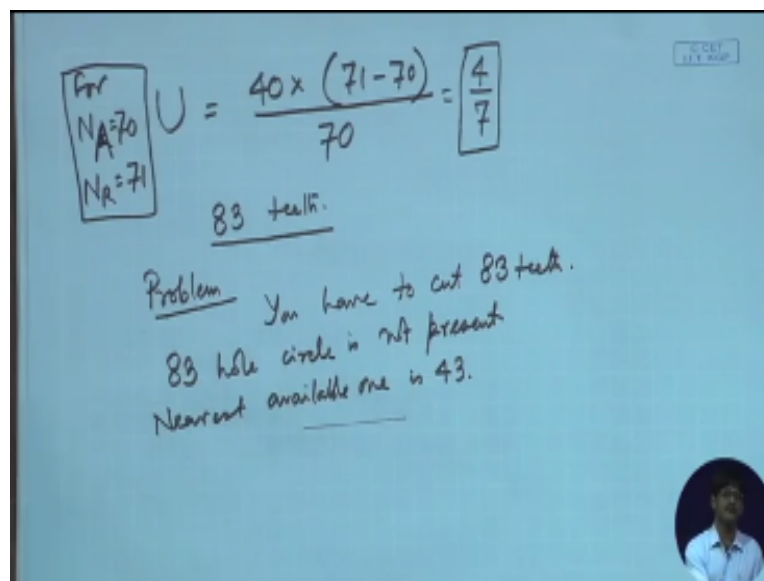 For
N_A=70
N_R=71
U = 40 × (71-70) / 70 = 4/7
83 teeth.
Problem You have to cut 83 teeth.
83 hole circle is not present
Nearest available one is 43.
C CET
I.I.T. KGP